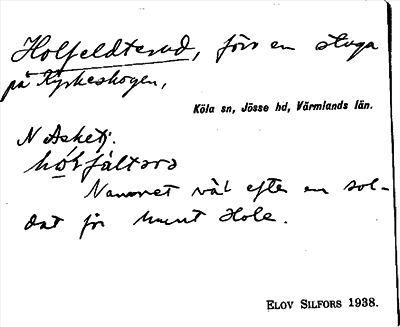 Holfeldterud, förr en stuga
på Kyrkeskogen,
Köla sn, Jösse hd, Värmlands län.
N Asketj.
Namnet väl efter en sol-
dat för Hole.
ELOV SILFORS 1938.